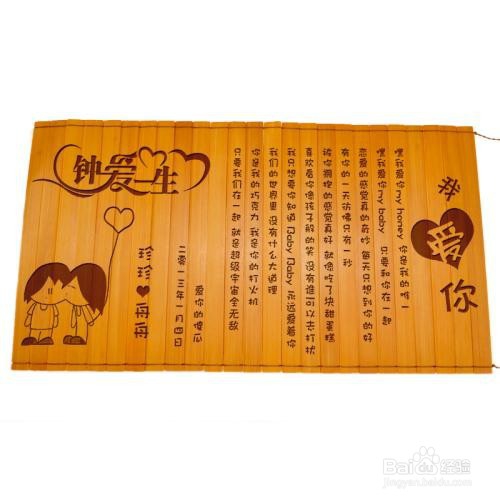 我爱你
嘿我爱你my honey 你是我的唯一
嘿我爱你my baby 只要和你在一起
恋爱的感觉真的奇妙 每天只想到你的好
有你的一天彷佛只有一秒
被你拥抱的感觉真好 就像吃了块甜蛋糕
喜欢看你像孩子般的笑 没有谁可以去打扰
我只想要你知道 Baby Baby 永远爱着你
我们的世界里 没有什么大道理
你是我的巧克力 我是你的打火机
只要我们在一起 就是超级宇宙全无敌
爱你的傻瓜
二〇一三年八月四日
钟爱一生
珍珍♥舟舟
Baidu经验
jingyan.baidu.com